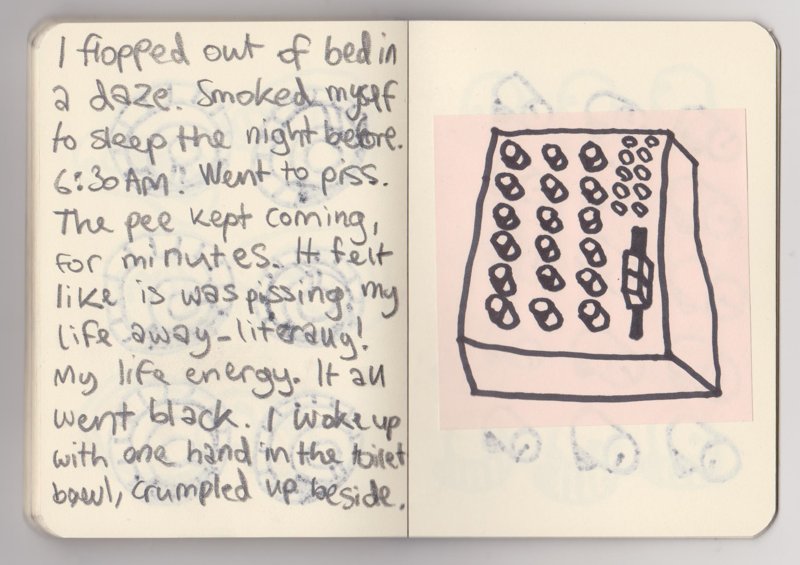 I flopped out of bed in
a daze. Smoked myself
to sleep the night before.
6:30 AM. Went to piss.
The pee kept coming,
for minutes. It felt
like is was pissing my
life away-literally!
My life energy. It all
went black. I woke up
with one hand in the toilet
bowl, crumpled up beside.